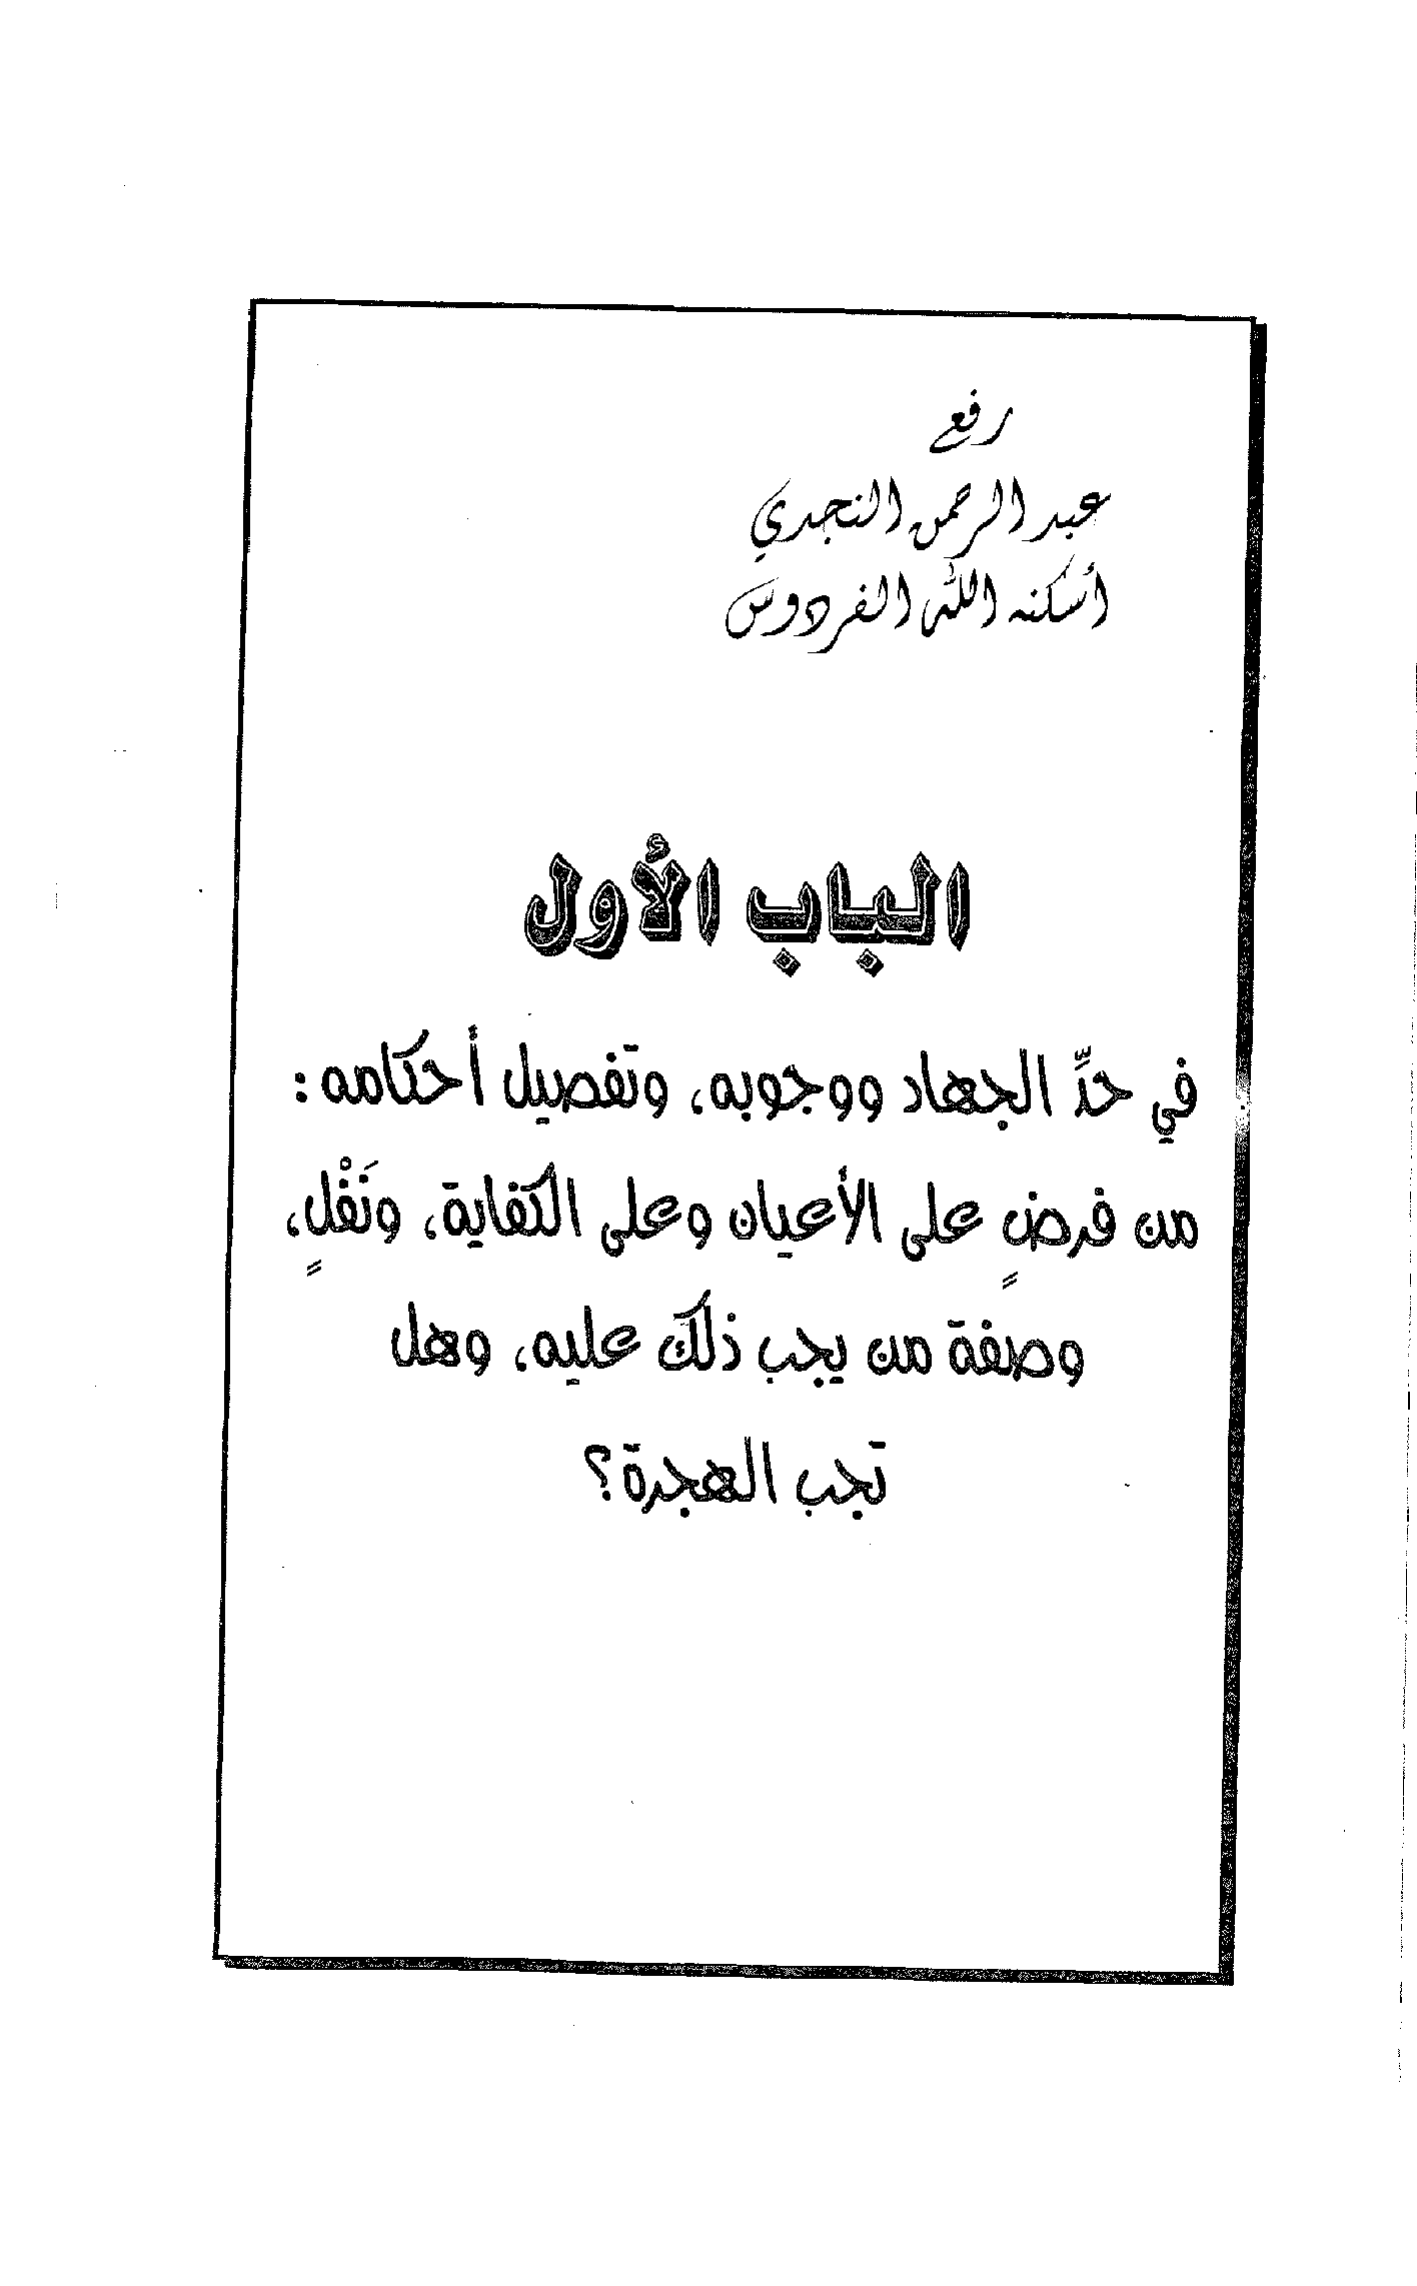 رفع
عبد الرحمن النجدي
أسكنه الله الفردوس
الباب الأول
في حدِّ الجهاد ووجوبه، وتفصيل أحكامه:
من فرضٍ على الأعيان وعلى الكفاية، ونَفْلٍ،
وصفة من يجب ذلك عليه، وهل
تجب الهجرة؟